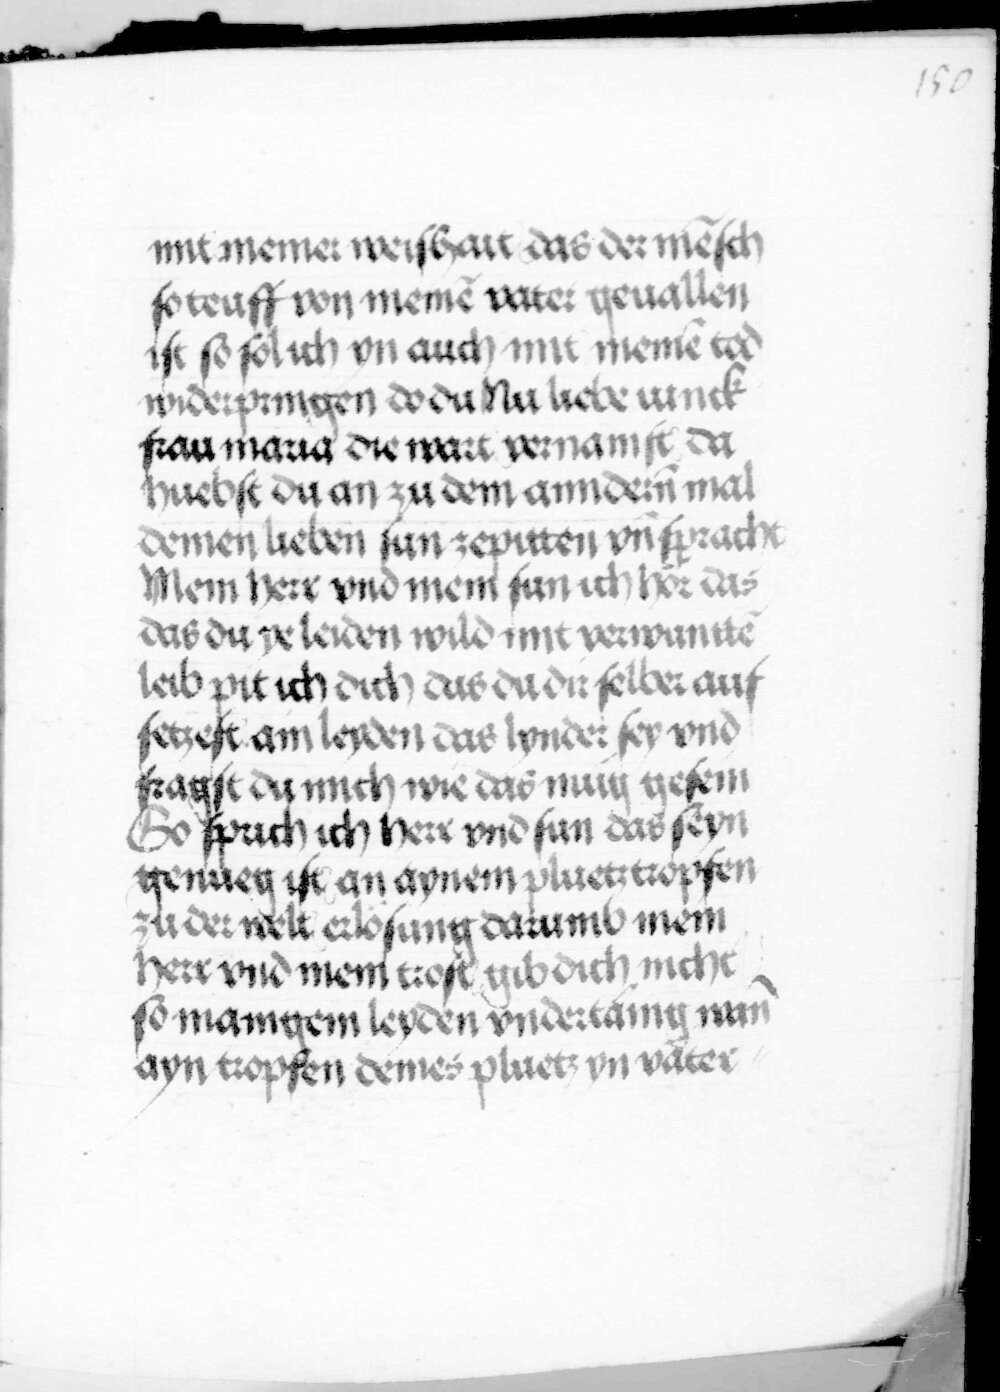 150
mit meiner weishait das der mēsch
so teuff von meinē vater geuallen
ist so sol ich yn auch mit meinē tod
widerpringen do du Nu liebe iunck
frau maria die wart vernamst da
huebst du an zu dem anndern̄ mal
deinen lieben sun zepitten vn̄ spracht
Mein herr vnd mein sun ich hör das
das du ye leiden wild mit verwuntē
leib pit ich dich das du dir selber auf
setzest ain leyden das lynder sey vnd
fragst du mich wie das mug gesein
So sprich ich herr vnd sun das seyn
genueg ist an aynem pluetztropfen
zu der welt erlösung darumb mein
herr vnd mein trost gib dich nicht
so manigem leyden vndertänig wan̄
ayn tropfen deines pluetz yn väter